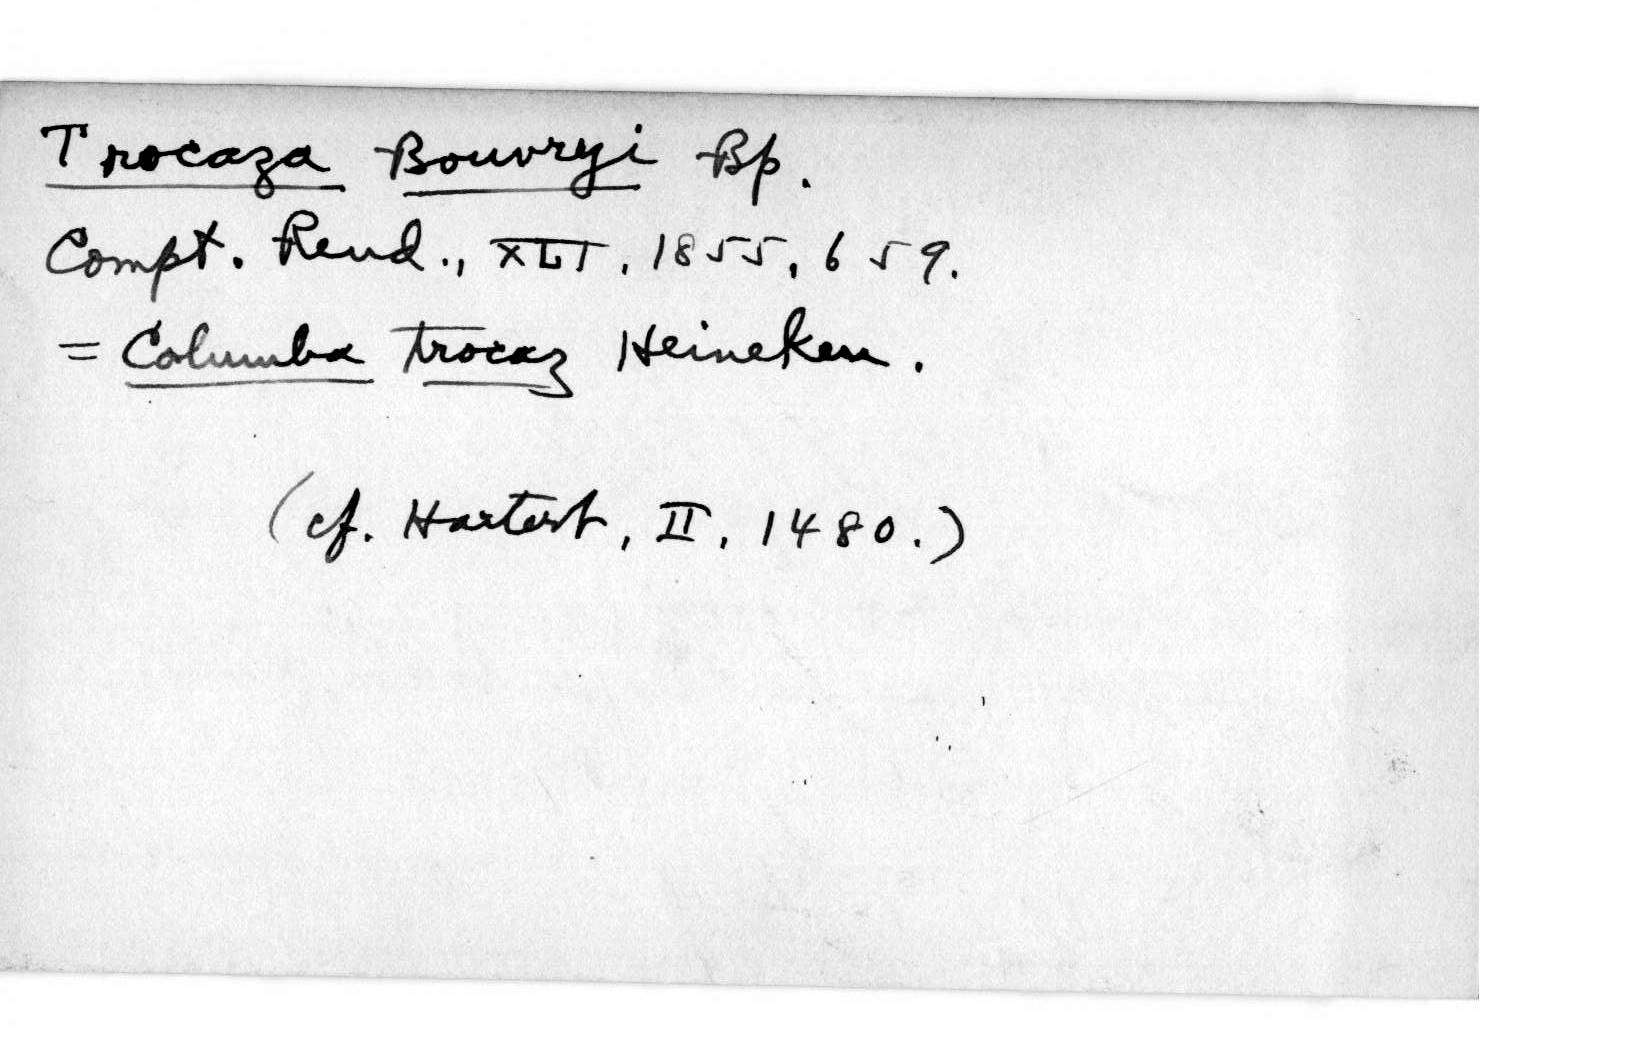 Trocaza Bouvryi Bp.
Compt. Rend., XLI, 1855, 659.
= Columba trocaz Heineken.
(cf. Hartert, II, 1480.)